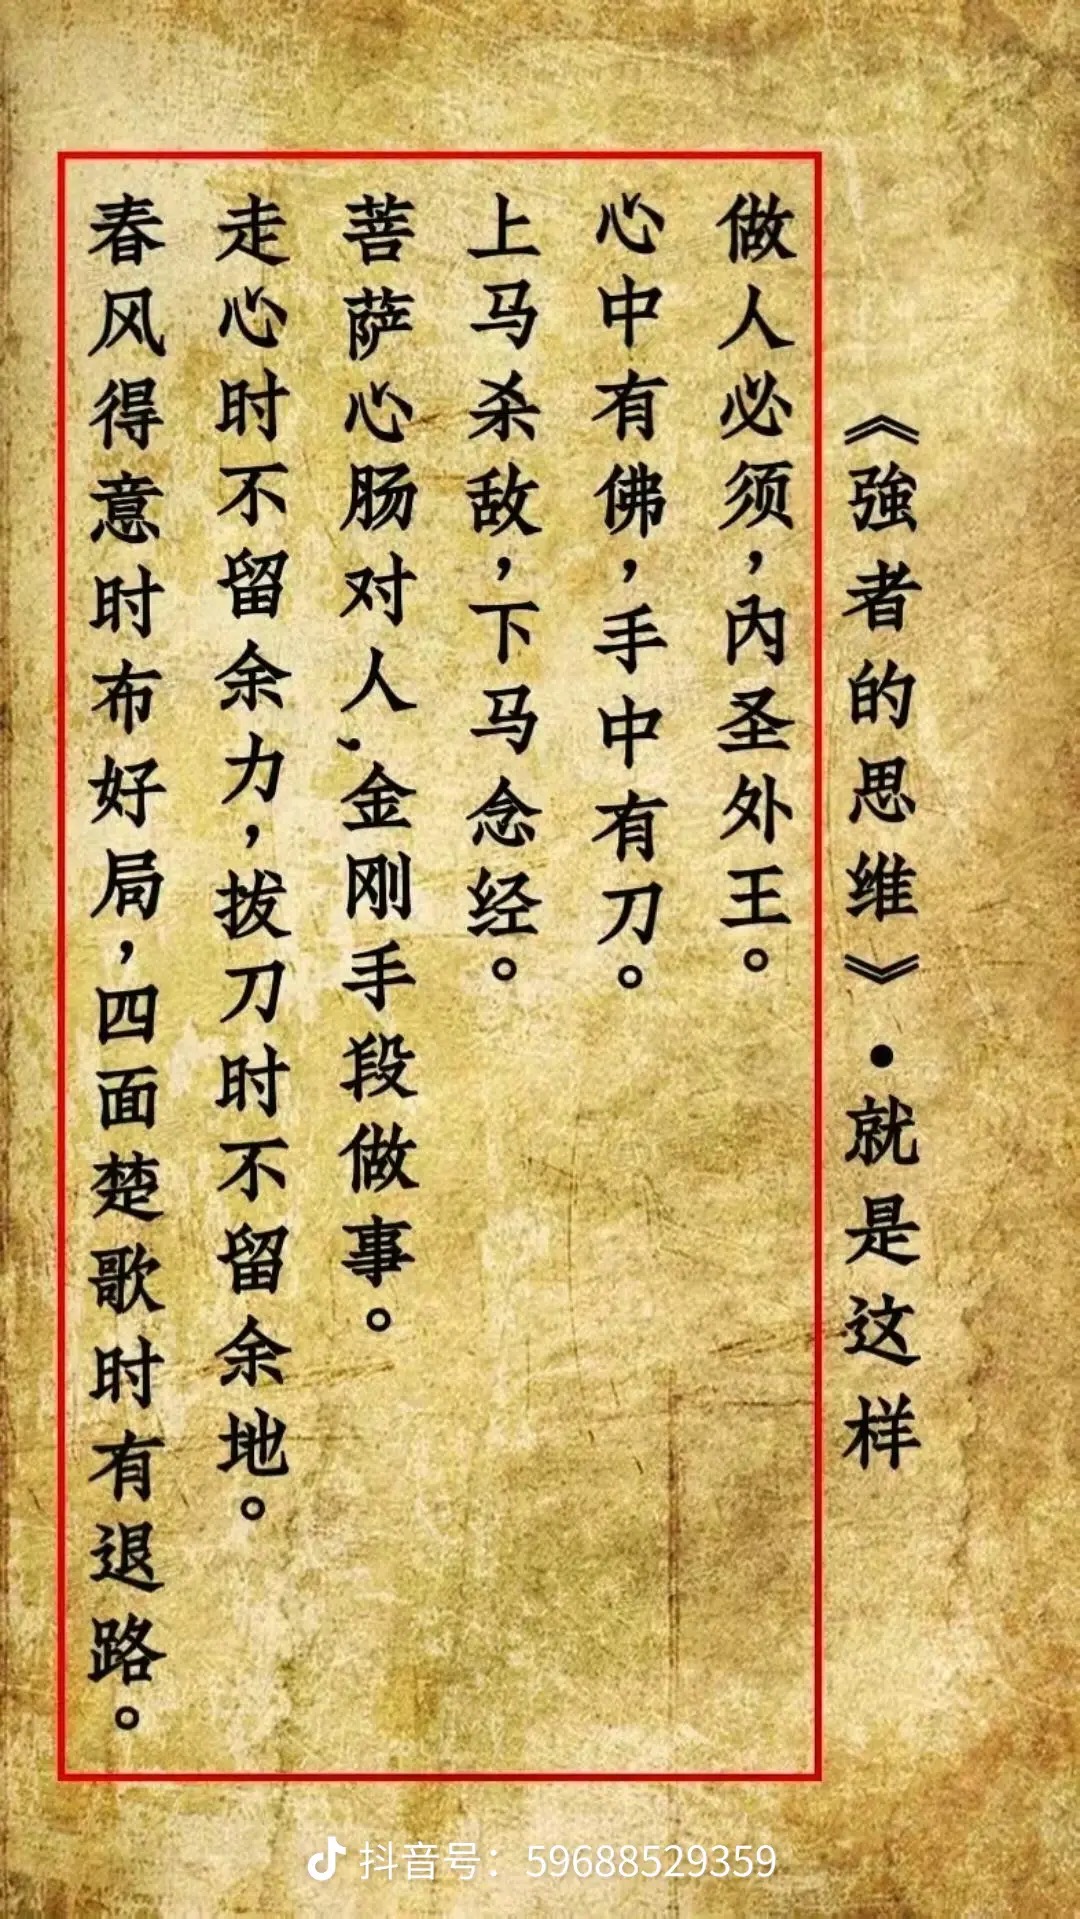 《強者的思维》•就是这样
做人必须，内圣外王。
心中有佛，手中有刀。
上马杀敌，下马念经。
菩萨心肠对人，金刚手段做事。
走心时不留余力，拔刀时不留余地。
春风得意时布好局，四面楚歌时有退路。
抖音号：59688529359